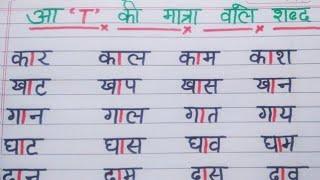 आ 'ा' की मात्रा वाले शब्द
कार काल काम काश
खाट खाप खास खान
गान गाल गात गाय
घाट घास घाव घाम
दान दाम दास दाव